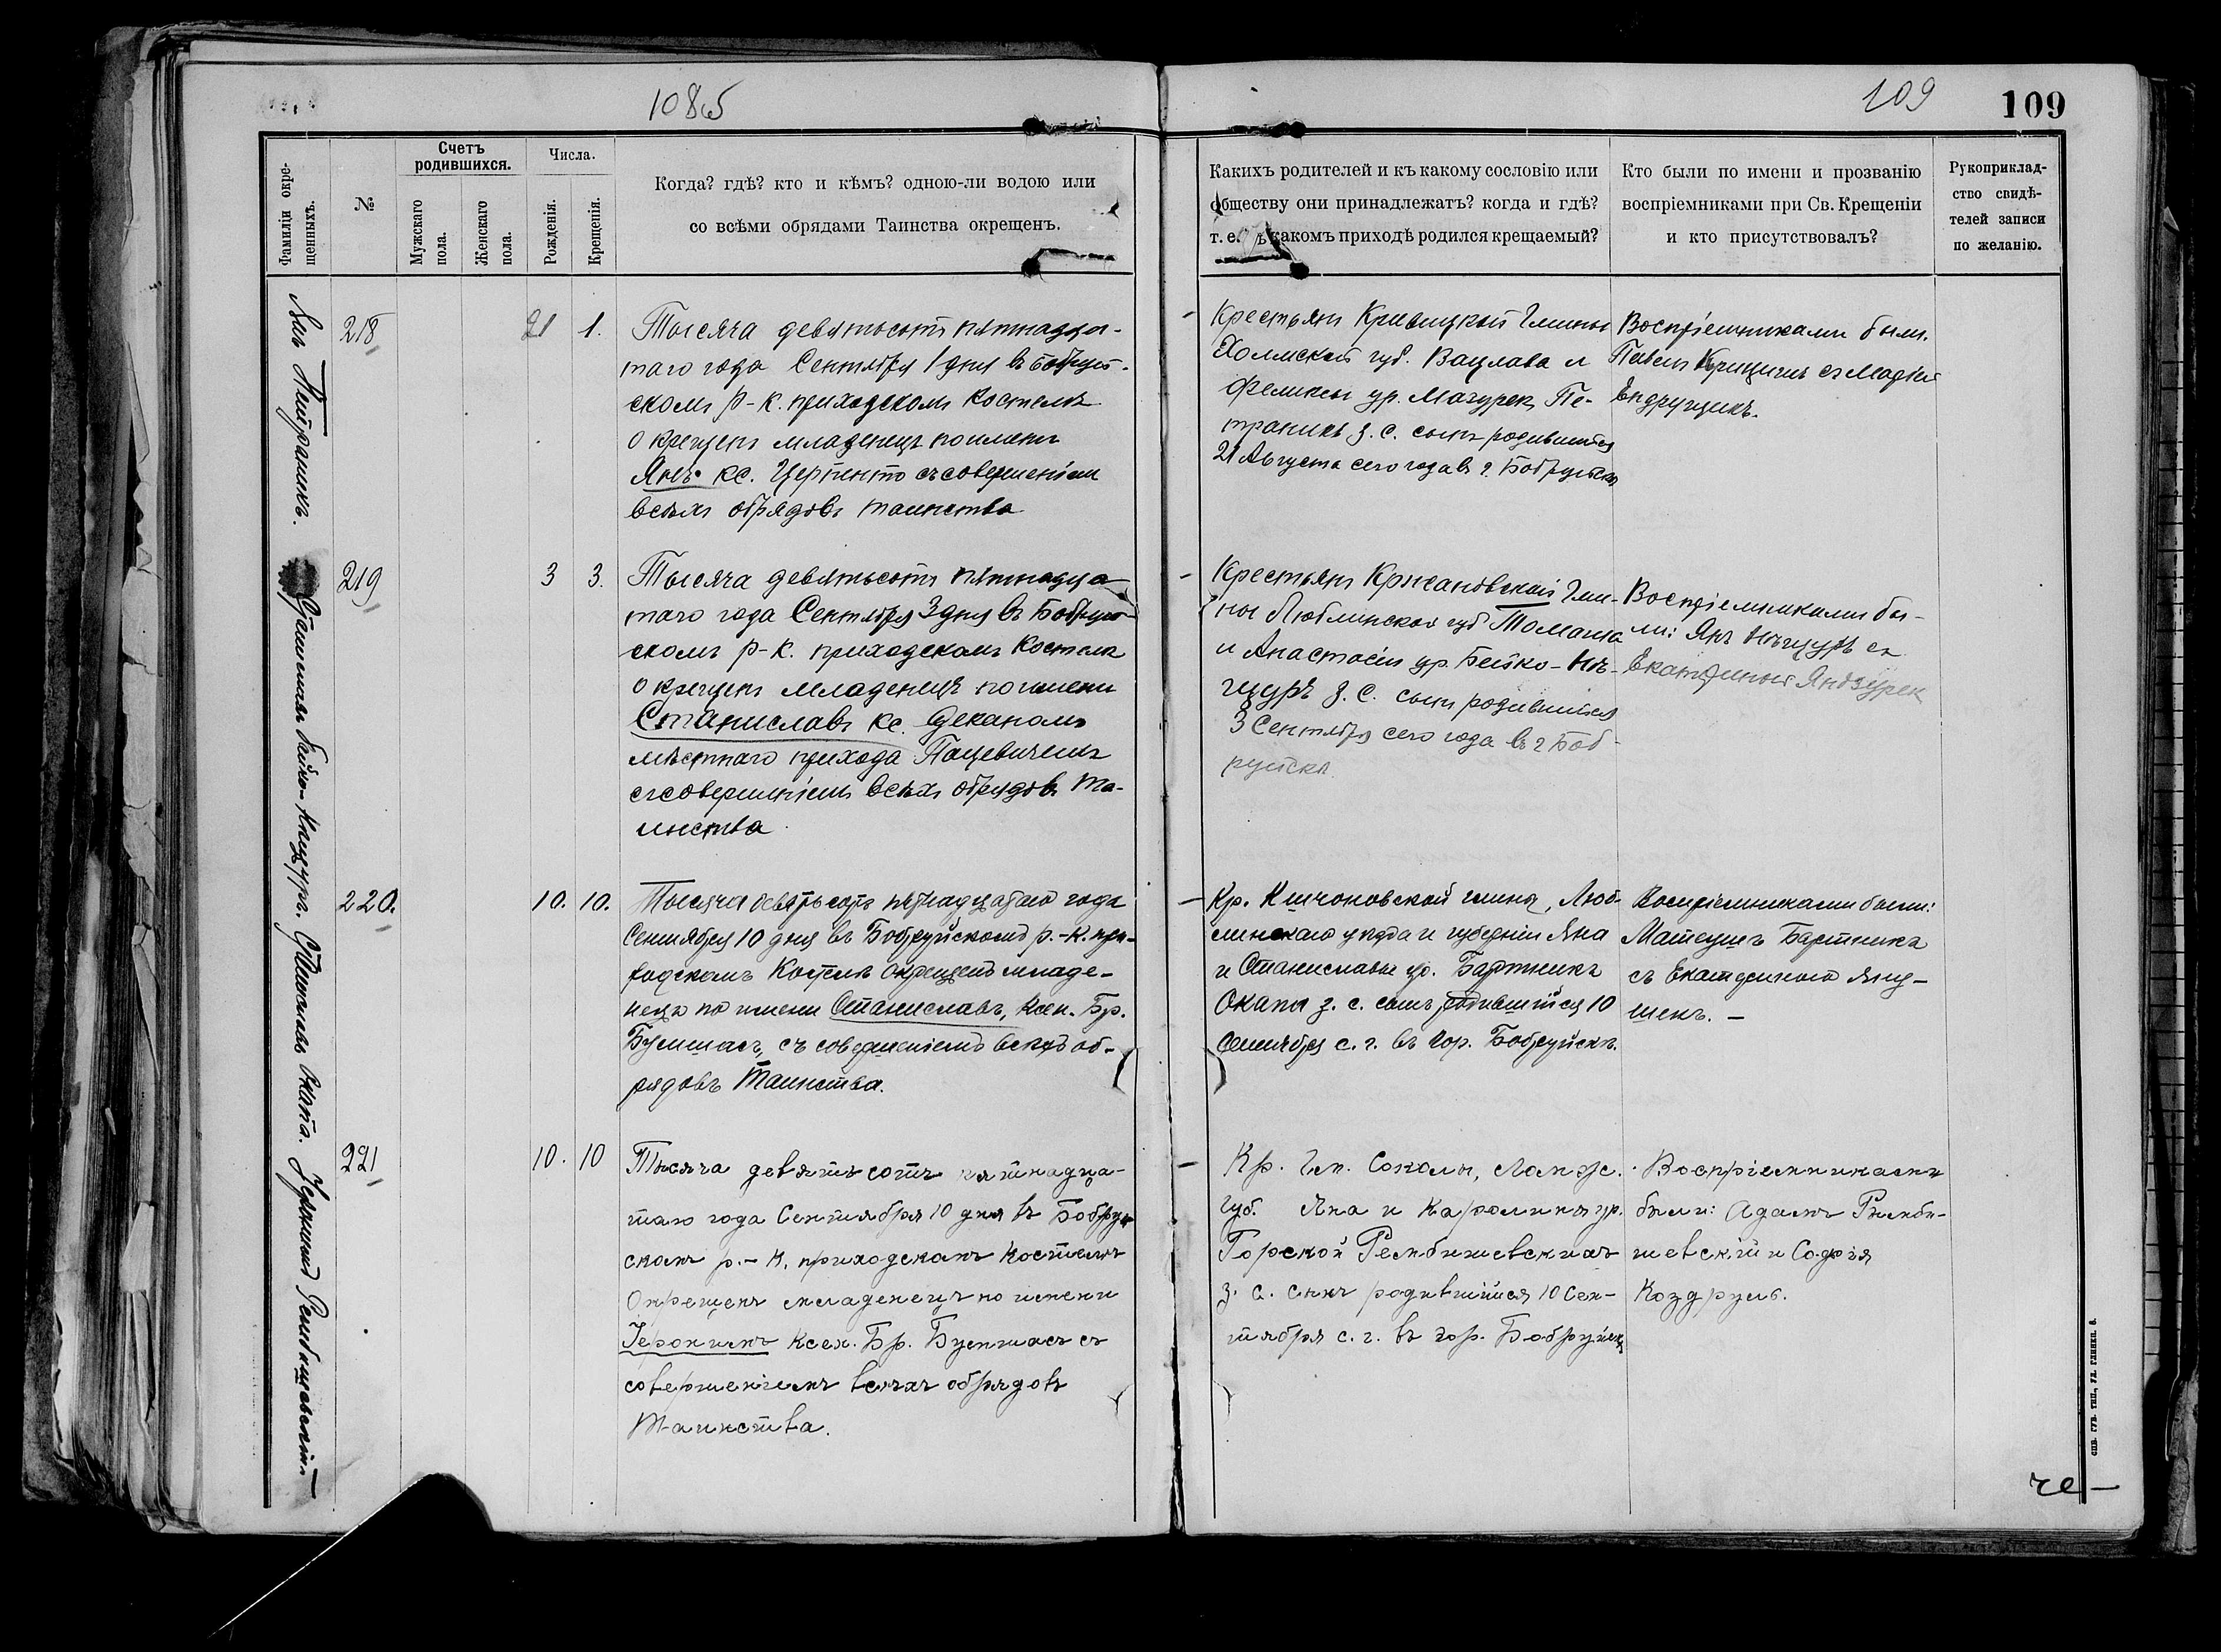 108 об
109
109
Фамиліи окре-
щенныхъ.
№
Счетъ
родившихся.
Мужскаго
пола.
Женскаго
пола.
Числа.
Рожденія.
Крещенія.
Когда? гдѣ? кто и кѣмъ? одною-ли водою или
со всѣми обрядами Таинства окрещенъ.
Какихъ родителей и къ какому сословію или
обществу они принадлежатъ? когда и гдѣ?
т. е. въ какомъ приходѣ родился крещаемый?
Кто были по имени и прозванію
воспріемниками при Св. Крещеніи
и кто присутствовалъ?
Рукоприклад-
ство свидѣ-
телей записи
по желанію.
Янъ Петраникъ.
218
21
1.
Тысяча девятьсотъ пятнадца-
таго года Сентября 1 дня въ Бобруй-
скомъ р-к. приходскомъ костелѣ
окрещенъ младенецъ по имени
Янъ кс. съ совершеніемъ
всѣхъ обрядовъ таинства
Крестьянъ Кривицкой Гмины
Холмской губ. Вацлава и
Феликсы ур. Мазурек Пе-
траникъ з. с. сынъ родившійся
21 Августа сего года въ г. Бобруйскѣ
Воспріемниками были.
Павелъ съ Маріей
Ендрущикъ.
Станиславъ Бейко-Нѣцуръ.
219
3
3.
Тысяча девятьсотъ пятнадца-
таго года Сентября 3 дня въ Бобруй-
скомъ р-к. приходскомъ костелѣ
окрещенъ младенецъ по имени
Станиславъ кс. Деканомъ
мѣстнаго прихода Пацевичемъ
съ совершеніемъ всѣхъ обрядовъ Та-
инства.
Крестьянъ Кржановской Гми-
ны Люблинской губ Томаша
и Анастасіи ур. Бейко-Нѣ-
цуръ з. с. сынъ родившійся
3 Сентября сего года въ г Боб-
руйскѣ
Воспріемниками бы-
ли: Янъ Нѣцуръ съ
Екатериной Яндзурек
Станиславъ Окапа.
220.
10.
10.
Тысяча девятьсотъ пятнадцатаго года
Сентября 10 дня въ Бобруйскомъ р.-к. при-
ходскомъ Костелѣ окрещенъ младе-
нецъ по имени Станиславъ, Ксен. Бр.
Бумшасъ, съ совершеніемъ всѣхъ об-
рядовъ Таинства.
Кр. Кшчоновской гмины, Люб-
линскаго уѣзда и губерніи Яна
и Станиславы ур. Бартникъ
Окапы з. с. сынъ, родившійся 10
Сентября с. г. въ гор. Бобруйскѣ.
Воспріемниками были:
Матеушъ Бартникъ
съ Екатериною Яну-
шекъ. —
Іеронимъ Рембишевскій
221
10.
10
Тысяча девятьсотъ пятнадца-
таго года Сентября 10 дня въ Бобруй
скомъ р.-к. приходскомъ Костелѣ
Окрещенъ младенецъ по имени
Іеронимъ Ксен. Бр. Бумшасъ съ
совершеніемъ всѣхъ обрядовъ
Таинства.
Кр. Гм. Соколы, Ломж.
губ. Яна и Каролины ур.
Горской Рембишевскихъ
з. с. сынъ родившійся 10 Сен-
тября с. г. въ гор. Бобруйскѣ
Воспріемниками
были: Адамъ Рымби-
шевскій и Софія
Коздрунь.
че —
СПБ. ГУБ. ТИП., УЛ. ГЛИНКИ. 8.